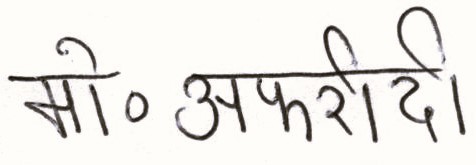 मो० अफरीदी